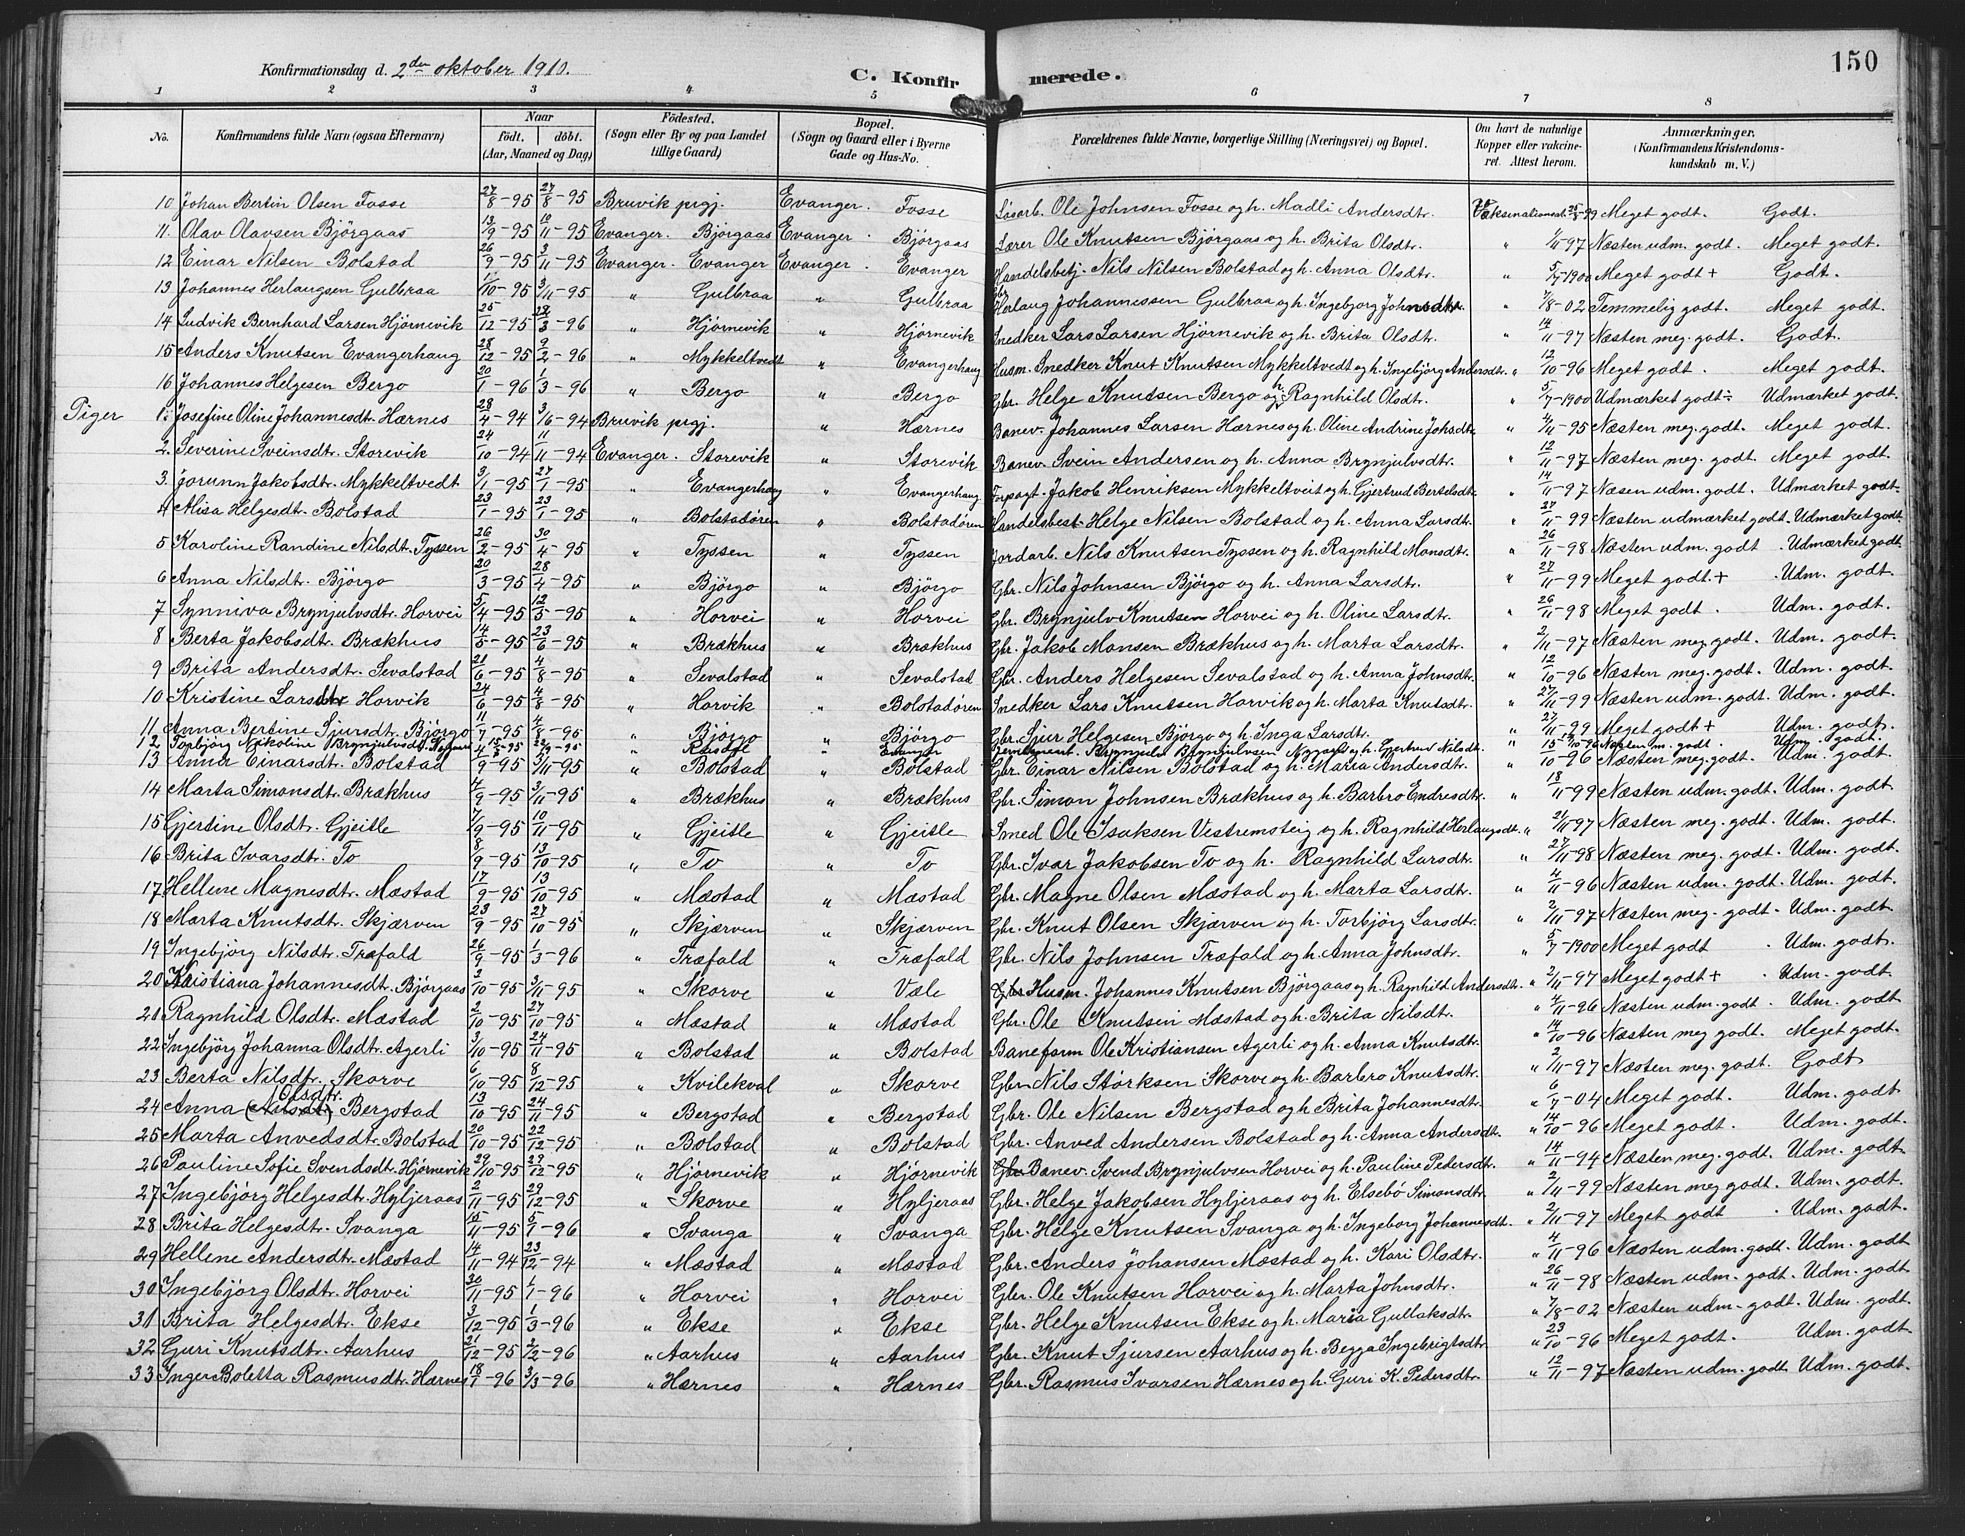 150
Konfirmationsdag d. 2den oktober 1910. C. Konfirmerede.
1 2 3 4 5 6 7 8
No. Konfirmandens fulde Navn (ogsaa Efternavn) Naar født. døbt. (Aar, Maaned og Dag) Födested. (Sogn eller By og paa Landet tillige Gaard) Bopæl. (Sogn og Gaard eller i Byerne Gade og Hus-No. Forældrenes fulde Navne, borgerlige Stilling (Næringsvei) og Bopæl. Om havt de naturlige Kopper eller vaccineret. Attest herom. Anmærkninger. (Konfirmandens Kristendomskundskab m. V.)
10 Johan Bertin Olsen Fosse 27/8-95 27/8-95 Bruvik prgj. Evanger. Fosse Løsarb. Ole Johnsen Fosse og h. Madli Andersdtr. Meget godt. Godt.
11. Olav Olavsen Bjørgaas 13/9-95 10/11-95 Evanger. Bjørgaas Evanger. Bjørgaas Lærer Ole Knutsen Bjørgaas og h. Brita Olsdtr. " 1/11-97 Næsten udm. godt. Meget godt.
12 Einar Nilsen Bolstad 26/9-95 3/11-95 Evanger. Evanger Evanger. Evanger Handelsbetj. Nils Nilsen Bolstad og h. Anna Olsdtr. " 5/7-1900 Meget godt + Godt.
13 Johannes Herlaugsen Gulbraa 3/11-95 " Gulbraa " Gulbraa Herlaug Johannessen Gulbraa og h. Ingebjørg Johnsdtr. " 7/8-02 Temmelig godt. Meget godt.
14 Ludvik Bernhard Larsen Hjørnevik 25/12-95 22/3-96 " Hjørnevik " Hjørnevik Snedker Lars Larsen Hjørnevik og h. Brita Olsdtr. " 14/11-97 Næsten meg. godt. Godt.
15 Anders Knutsen Evangerhaug 28/12-95 9/2-96 " Mykkeltvedt " Evangerhaug Husm. Snedker Knut Knutsen Mykkeltvedt og h. Ingebjørg Andersdtr. " 12/10-96 Meget godt. Meget godt.
16 Johannes Helgesen Bergo 20/1-96 1/3-96 " Bergo " Bergo Gbr. Helge Knutsen Bergo og h. Ragnhild Olsdtr. " 5/7-1900 Udmærket godt÷ Udmærket godt.
Piger 1. Josefine Oline Johannesdt. Hærnes 28/4-94 3/6-94 Bruvik prgj. " Hærnes Banev. Johannes Larsen Hærnes og h. Oline Andrine Johsdtr. " 4/11-95 Næsten meg. godt. Meget godt.
2. Severine Sveinsdtr. Storevik 24/10-94 11/11-94 Evanger. Storevik " Storevik Banev. Svein Andersen og h. Anna Brynjulvsdtr. " 12/11-97 Næsten meg. godt. Meget godt.
3. Jorunn Jakobsdtr. Mykkeltvedt 3/1-95 27/1-95 " Evangerhaug " Evangerhaug Forpagt. Jakob Henriksen Mykkeltveit og h. Gjertrud Bertelsdtr. " 14/11-97 Næsen udm. godt. Udmærket godt.
4 Alisa Helgesdt. Bolstad 23/1-95 23/1-95 " Bolstadøren " Bolstadøren Handelsbest. Helge Nilsen Bolstad og h. Anna Larsdtr. " 27/11-99 Næsten udmærket godt. Udmærket godt.
5 Karoline Randine Nilsdt. Tyssen 26/2-95 30/4-95 " Tyssen " Tyssen Jordarb. Nils Knutsen Tyssen og h. Ragnhild Monsdtr. " 26/11-98 Næsten udm. godt. Udmærket godt.
6 Anna Nilsdtr. Bjørgo 20/3-95 28/4-95 " Bjørgo " Bjørgo Gbr. Nils Johnsen Bjørgo og h. Anna Larsdtr. " 27/11-99 Meget godt + Udm. godt.
7 Synniva Brynjulvsdtr. Horvei 5/4-95 12/5-95 " Horvei " Horvei Gbr. Brynjulv Knutsen Horvei og h. Oline Larsdtr. " 26/11-98 Meget godt. Udm. godt.
8 Berta Jakobsdt. Brækhus 14/5-95 23/6-95 " Brækhus " Brækhus Gbr. Jakob Monsen Brækhus og h. Marta Larsdtr. " 2/11-97 Næsten meg. godt. Udm. godt.
9 Brita Andersdt. Sevalstad 21/6-95 4/8-95 " Sevalstad " Sevalstad Gbr. Anders Helgesen Sevalstad og h. Anna Johnsdtr. " 12/10-96 Næsten meg. godt. Udm. godt.
10 Kristine Larsdtr Horvik 24/6-95 4/8-95 " Horvik " Bolstadøren Snedker Lars Knutsen Horvik og h. Marta Knutsdtr. " 27/11-99 Næsten udm. godt. Udm. godt.
11. Anna Bertine Sjursdt. Bjørgo 11/7-95 4/8-95 " Bjørgo " Bjørgo Gbr. Sjur Helgesen Bjørgo og h. Inga Larsdtr. " 27/11-99 Meget godt + Udm. godt.
12 Torbjørg Nikoline Brynjulvsdt. " " Evanger Brynjulv Brynjulvsen og h. Gjertrud Nilsdt. " Næsten m. godt. Udm. godt.
13 Anna Einarsdt. Bolstad 4/9-95 3/11-95 " Bolstad " Bolstad Gbr. Einar Nilsen Bolstad og h. Maria Andersdtr. " 10-96 Næsten meg. godt. Udm. godt.
14 Marta Simonsdt. Brækhus 4/9-95 3/11-95 " Brækhus " Brækhus Gbr. Simon Johnsen Brækhus og h. Barbro Endresdtr. " 18/11-99 Næsten udm. godt. Udm. godt.
15 Gjertine Olsdt. Gjeitle 7/9-95 10/11-95 " Gjeitle " Gjeitle Smed Ole Isaksen Vestremsteig og h. Ragnhild Herlaugsdt. " 21/11-97 Næsten meg. godt. Udm. godt.
16 Brita Ivarsdt. To 8/9-95 13/10-95 " To " To Gbr. Ivar Jakobsen To og h. Ragnhild Larsdtr. " 27/11-98 Næsten meg. godt. Udm. godt.
17 Hellene Magnesdt. Mæstad 17/9-95 13/10-95 " Mæstad " Mæstad Gbr. Magne Olsen Mæstad og h. Marta Larsdtr. " 4/11-96 Næsten udm. godt. Udm. godt.
18 Marta Knutsdt. Skjærven 23/9-95 27/10-95 " Skjærven " Skjærven Gbr. Knut Olsen Skjærven og h. Torbjørg Larsdtr. " 2/11-97 Næsten meg. godt. Udm. godt.
19 Ingebjørg Nilsdt. Træfald 26/9-95 1/3-96 " Træfald " Træfald Gbr. Nils Johnsen Træfald og h. Anna Johnsdtr. " 5/7-1900 Meget godt. Udm. godt.
20 Kristiana Johannesdt. Bjørgaas 3/10-95 3/11-95 " Skorve " Væle Gbr Husm. Johannes Knutsen Bjørgaas og h. Ragnhild Andersdt. " 2/11-97 Meget godt + Udm. godt.
21 Ragnhild Olsdt. Mæstad 2/10-95 27/10-95 " Mæstad " Mæstad Gbr. Ole Knutsen Mæstad og h. Brita Nilsdt. " 4/11-96 Næsten udm. godt. Udm. godt
22 Ingebjørg Johanna Olsdt. Agerli 3/10-95 24/11-95 " Bolstad " Bolstad Baneform Ole Kristiansen Agerli og h. Anna Knutsdtr. " 14/10-96 Næsten meg godt. Meget godt.
23 Berta Nilsdtr. Skorve 6/10-95 8/12-95 " Kvilekval " Skorve Gbr Nils Størksen Skorve og h. Barbro Knutsdtr. " 2/11-97 Næsten meg. godt. Godt
24 Anna (Nilsdt.) Olsdtr. Bergstad 13/10-95 24/11-95 " Bergstad " Bergstad Gbr. Ole Nilsen Bergstad og h. Brita Johannesdtr. " 6/7-04 Meget godt. Udm. godt.
25 Marta Anvedsdt. Bolstad 20/10-95 22/12-95 " Bolstad " Bolstad Gbr. Anved Andersen Bolstad og h. Anna Andersdt. " 14/10-96 Meget godt. Udm. godt.
26 Pauline Sofie Svendsdt. Hjørnevik 29/10-95 29/12-95 " Hjørnevik " Hjørnevik Gbr Banev. Svend Brynjulvsen Horvei og h. Pauline Pedersdt. " 14/11-94 Næsten meg. godt. Udm. godt.
27 Ingebjørg Helgesdt. Hyljeraas 2/11-95 29/12-95 " Skorve " Hyljeraas Gbr. Helge Jakobsen Hyljeraas og h. Elsebø Simonsdt. " 2/11-99 Næsten meg godt. Udm. godt.
28 Brita Helgesdt. Svanga 15/11-95 5/1-96 " Svanga " Svanga Gbr. Helge Knutsen Svanga og h. Ingeborg Johannesdt. " 2/11-97 Meget godt. Udm. godt.
29 Hellene Andersdt. Mæstad 14/11-94 23/12-94 " Mæstad " Mæstad Gbr. Anders Johansen Mæstad og h. Kari Olsdtr. " 4/11-96 Næsten udm. godt. Udm. godt.
30 Ingebjørg Olsdt. Horvei 30/11-95 1/1-96 " Horvei " Horvei Gbr. Ole Knutsen Horvei og h. Marta Johnsdtr. " 26/11-98 Næsten udm. godt. Udm. godt.
31 Brita Helgesdt. Ekse 3/12-95 1/3-96 " Ekse " Ekse Gbr. Helge Knutsen Ekse og h. Maria Gullaksdtr. " 7/8-02 Næsten udm. godt. Udm. godt.
32 Guri Knutsdt. Aarhus 21/12-95 2/2-96 " Aarhus " Aarhus Gbr. Knut Sjursen Aarhus og h. Begga Ingebrigtsdtr. " 23/10-96 Meget godt. Udm. godt.
33 Ingera Boletta Rasmusdtr. Hærnes 18/1-96 3/3-96 " Hærnes " Hærnes Gbr. Rasmus Ivarsen Hærnes og h. Guri K. Pedersdtr. " 12/11-97 Næsten udm. godt. Udm. godt.